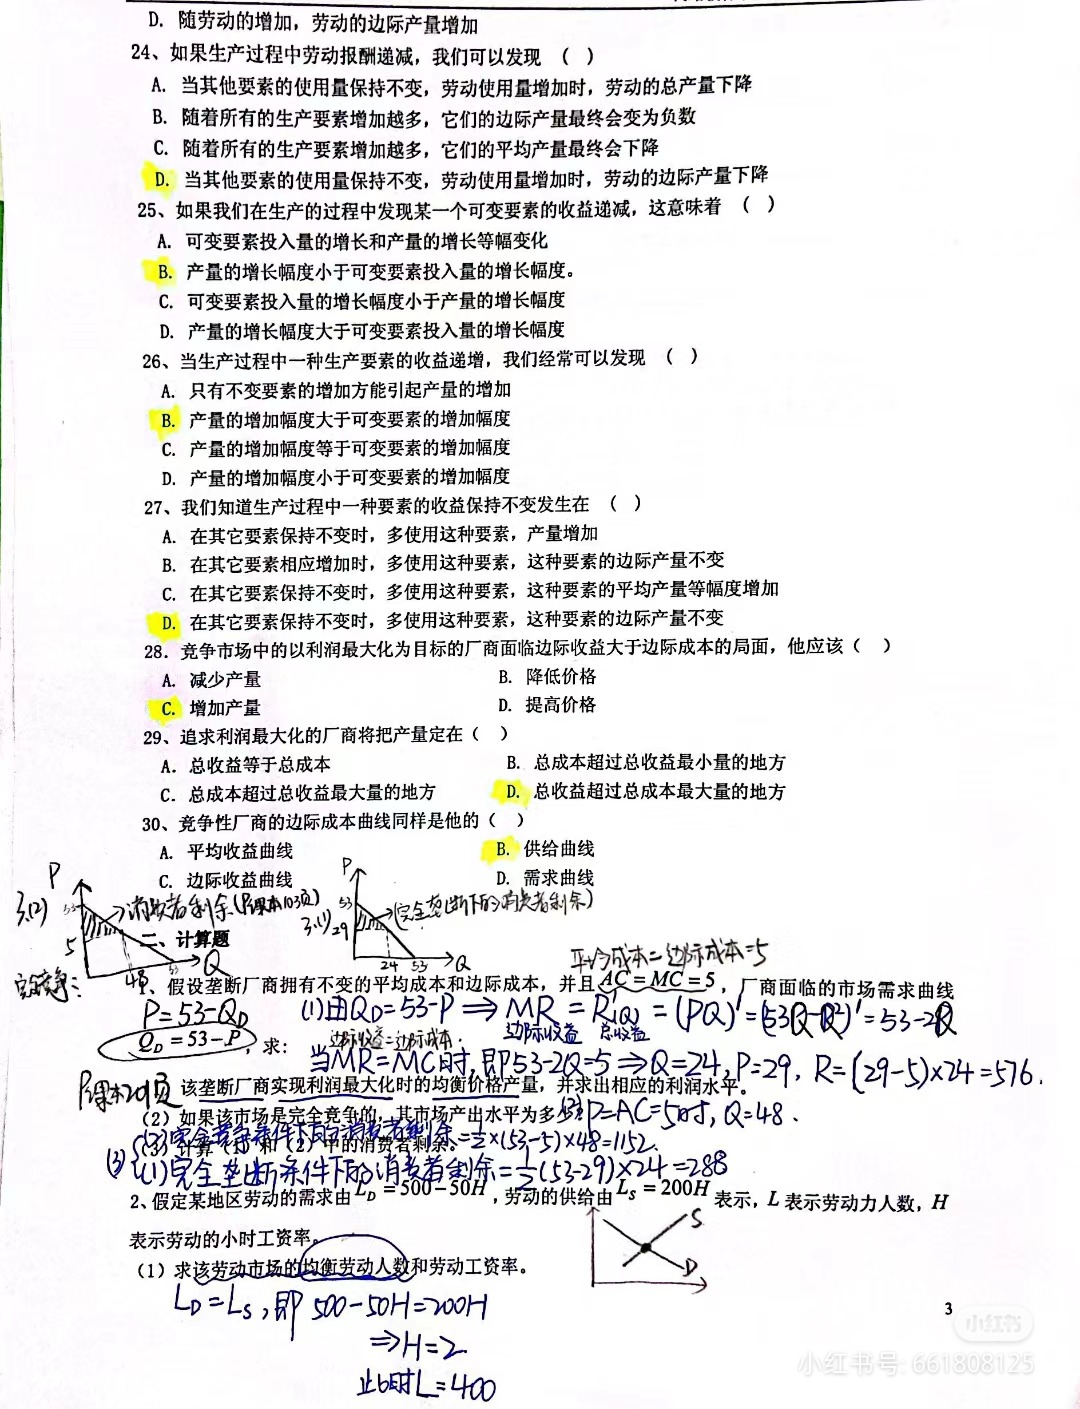 D. 随劳动的增加，劳动的边际产量增加
24、如果生产过程中劳动报酬递减，我们可以发现 （ ）
A. 当其他要素的使用量保持不变，劳动使用量增加时，劳动的总产量下降
B. 随着所有的生产要素增加越多，它们的边际产量最终会变为负数
C. 随着所有的生产要素增加越多，它们的平均产量最终会下降
D. 当其他要素的使用量保持不变，劳动使用量增加时，劳动的边际产量下降
25、如果我们在生产的过程中发现某一个可变要素的收益递减，这意味着 （ ）
A. 可变要素投入量的增长和产量的增长等幅变化
B. 产量的增长幅度小于可变要素投入量的增长幅度。
C. 可变要素投入量的增长幅度小于产量的增长幅度
D. 产量的增长幅度大于可变要素投入量的增长幅度
26、当生产过程中一种生产要素的收益递增，我们经常可以发现 （ ）
A. 只有不变要素的增加方能引起产量的增加
B. 产量的增加幅度大于可变要素的增加幅度
C. 产量的增加幅度等于可变要素的增加幅度
D. 产量的增加幅度小于可变要素的增加幅度
27、我们知道生产过程中一种要素的收益保持不变发生在 （ ）
A. 在其它要素保持不变时，多使用这种要素，产量增加
B. 在其它要素相应增加时，多使用这种要素，这种要素的边际产量不变
C. 在其它要素保持不变时，多使用这种要素，这种要素的平均产量等幅度增加
D. 在其它要素保持不变时，多使用这种要素，这种要素的边际产量不变
28. 竞争市场中的以利润最大化为目标的厂商面临边际收益大于边际成本的局面，他应该（ ）
A. 减少产量 B. 降低价格
C. 增加产量 D. 提高价格
29、追求利润最大化的厂商将把产量定在（ ）
A. 总收益等于总成本 B. 总成本超过总收益最小量的地方
C. 总成本超过总收益最大量的地方 D. 总收益超过总成本最大量的地方
30、竞争性厂商的边际成本曲线同样是他的（ ）
A. 平均收益曲线 B. 供给曲线
C. 边际收益曲线 D. 需求曲线
P P
3.(2) 53 消费者剩余(P课本103页) 3.(1) 53 (完全垄断下的消费者剩余)
5 29
二、计算题
48 53 Q 24 53 Q
完全竞争： 平均成本=边际成本=5
1、假设垄断厂商拥有不变的平均成本和边际成本，并且AC=MC=5，厂商面临的市场需求曲线
P=53-QD (1)由QD=53-P⇒MR=R'(Q)=(PQ)'=(53Q-Q²)'=53-2Q
边际收益 总收益
QD=53-P，求： 边际收益=边际成本.
当MR=MC时,即53-2Q=5⇒Q=24,P=29, R=(29-5)×24=576.
该垄断厂商实现利润最大化时的均衡价格产量，并求出相应的利润水平。
（2）如果该市场是完全竞争的，其市场产出水平为多少？ (2)P=AC=5时, Q=48.
(2)完全竞争条件下的消费者剩余=½×(53-5)×48=1152.
（3）计算（1）和（2）中的消费者剩余。
(3) (1)完全垄断条件下的消费者剩余=½(53-29)×24=288
2、假定某地区劳动的需求由LD=500-50H，劳动的供给由LS=200H表示，L表示劳动力人数，H
表示劳动的小时工资率。
S
D
（1）求该劳动市场的均衡劳动人数和劳动工资率。
LD=LS,即500-50H=200H
⇒H=2
此时L=400
3
小红书
小红书号: 661808125